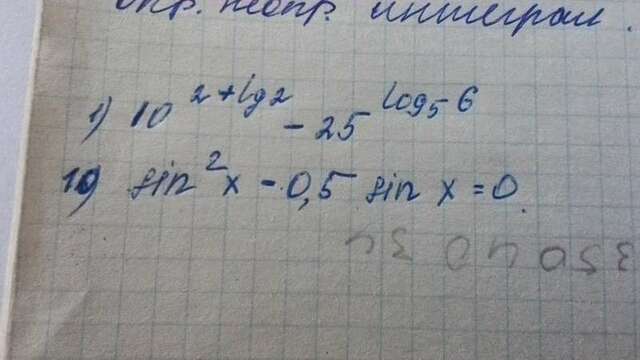 опр. неопр. интеграл.
1) 10^{2+lg2} - 25^{log_5 6}
10) sin^2 x - 0,5 sin x = 0.